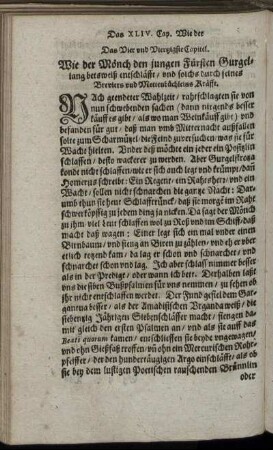 Das XLIV. Cap. Wie der
Das Vier und Viertzigste Capitel.
Wie der Mönch den jungen Fürsten Gurgel-
lantz betsweiß entschläfft, und solchs durch seines
Breviers und Metenbüchleins Kräfft.
NAch geendeter Mahlzeit, rahtschlagten sie von
nun schwebenden sachen (dann nirgends besser
käuff es gibt, als wo man Weinkäuff gibt) und
befanden für gut, daß man umb Mitternacht außfallen
solte zum Scharmützel der Feind zuversuchen: was sie für
Wacht hielten. Unter deß möchte ein jeder ein Postzlin
schlaffen, desto wackerer zu werden. Aber Gurgelstrotza
konde nicht schlaffen, wie er sich auch legt und krümpt, daß
Homerus schreibt: Ein Regent, ein Rahtsherr, und ein
Wacht, sollen nicht schnarchen die gantze Nacht: Dar-
umb thun sie ihens Schlafftrünck, daß sie morgē im Raht
schwerköpffig zu jedem ding ja nicken. Da sagt der Mönch
zu jhm: viel beut schlaffen wol zu Roß und im Schiff, daß
macht daß wagen: Einer legt sich ein mal under einen
Birnbaum, und fieng an Biren zu zählen, und eh er uber
etlich teytend kam, da lag er schon und schnarcht, und
schnarchet schon vnd lag. Ich aber schlaff nimmer besser
als in der Predige, oder wann ich bett. Derhalben laßt
uns die siben Bußpsalmen für uns nemmen, zu sehen ob
jhr nicht entschlaffen werdet. Der Fund gefiel dem Gar-
gantua besser, als der Amadissischen Urganda weiß, die
siebentzig Jährigen Siebenschläffer macht, fiengen da-
mit gleich den ersten Psalmen an, und als sie auff das
Beati quorum kamen, entschlieffen sie beyde ungewagen,
und ohn Gießfaß troffen, vñ ohn ein Mercurischen Rohr-
pfeiffer, der den hundertäugigen Argo einschläfft, als ob
sie bey dem lustigen Poetischen rauschenden Brünnlin
oder